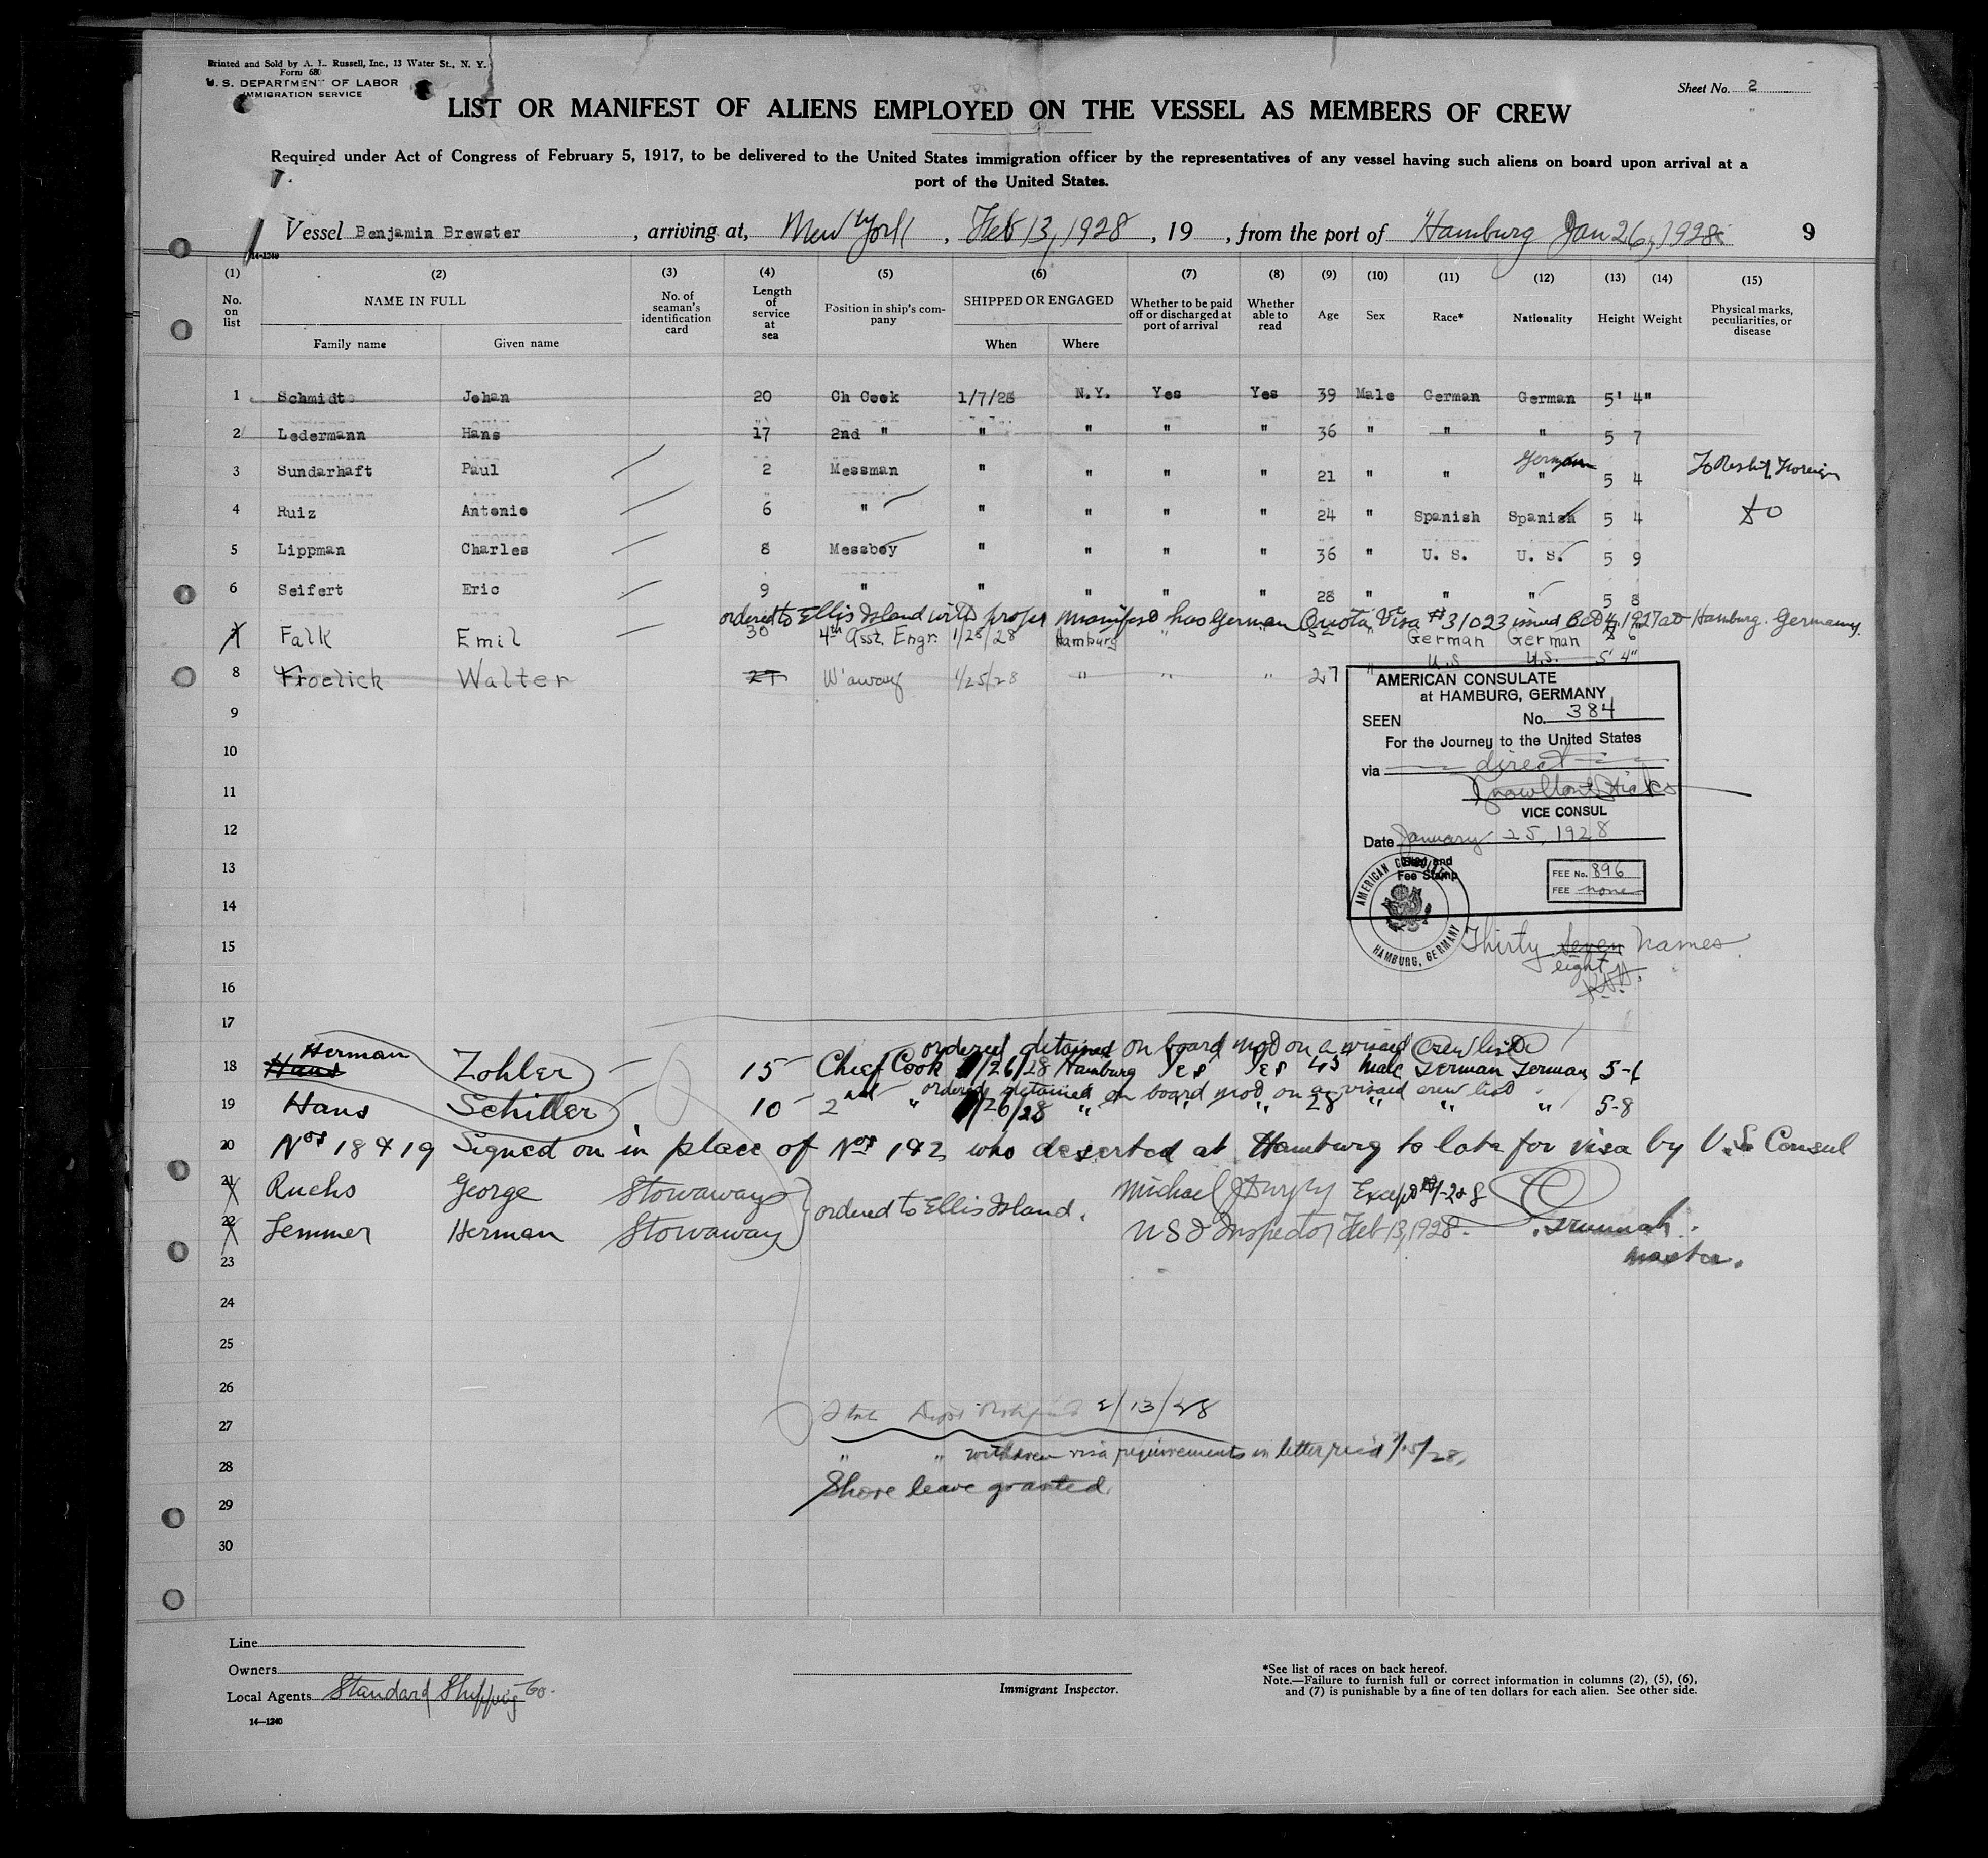 Printed and Sold by A. L. Russell, Inc., 13 Water St., N. Y.
Form 680
U. S. DEPARTMENT OF LABOR
IMMIGRATION SERVICE
Sheet No. 2
LIST OR MANIFEST OF ALIENS EMPLOYED ON THE VESSEL AS MEMBERS OF CREW
Required under Act of Congress of February 5, 1917, to be delivered to the United States immigration officer by the representatives of any vessel having such aliens on board upon arrival at a
port of the United States.
Vessel Benjamin Brewster, arriving at, New York, Feb 13, 1928, 19 , from the port of Hamburg Jan 26, 1928 9
14-1240
(1) (2) (3) (4) (5) (6) (7) (8) (9) (10) (11) (12) (13) (14) (15)
No. on list NAME IN FULL Family name Given name No. of seaman's identification card Length of service at sea Position in ship's company SHIPPED OR ENGAGED When Where Whether to be paid off or discharged at port of arrival Whether able to read Age Sex Race* Nationality Height Weight Physical marks, peculiarities, or disease
1 Schmidt Johan 20 Ch Cook 1/7/28 N.Y. Yes Yes 39 Male German German 5' 4"
2 Ledermann Hans 17 2nd " " " " " 36 " " " 5 7
3 Sundarhaft Paul 2 Messman " " " " 21 " " German " 5 4 To Reship Foreign
4 Ruiz Antonio 6 " " " " " 24 " Spanish Spanish 5 4 do
5 Lippman Charles 8 Messboy " " " " 36 " U. S. U. S. 5 9
6 Seifert Eric 9 " " " " " 28 " " " 5 8
ordered to Ellis Island with proper manifest has German Quota Visa #31023 issued 1927 at Hamburg. Germany.
7 Falk Emil 30 4th Asst. Engr. 1/28/28 Hamburg " " 52 " German German 5 6
8 Froelick Walter 27 W'away 1/25/28 " " " 27 " U.S. U.S. 5' 4"
9
10
11
12
13
14
15
16
17
AMERICAN CONSULATE
at HAMBURG, GERMANY
SEEN No. 384
For the Journey to the United States
via direct
VICE CONSUL
Date January 25, 1928
Seal and
Fee Stamp
FEE No. 896
FEE none
AMERICAN CONSULATE HAMBURG, GERMANY
Thirty seven names
eight
ordered detained on board not on a visaed crew list
18 Hans Herman Zohler 15 Chief Cook 1/26/28 Hamburg Yes Yes 45 Male German German 5-6
ordered detained on board not on a visaed crew list
19 Hans Schiller 10 2nd " 1/26/28 " " " 28 " " " 5-8
20 Nos 18 & 19 Signed on in place of Nos 1 & 2 who deserted at Hamburg to late for visa by U.S. Consul
21 Ruchs George Stowaway
22 Lemmer Herman Stowaway
ordered to Ellis Island.
Michael J Except
U S I Inspector Feb 13, 1928.
master.
23
24
25
26
27
28
29
30
State Dept Notified 2/13/28
" " withdrew visa requirements in letter rec'd
Shore leave granted
Line
Owners
Local Agents Standard Shipping Co.
14—1240
Immigrant Inspector.
*See list of races on back hereof.
Note.—Failure to furnish full or correct information in columns (2), (5), (6),
and (7) is punishable by a fine of ten dollars for each alien. See other side.